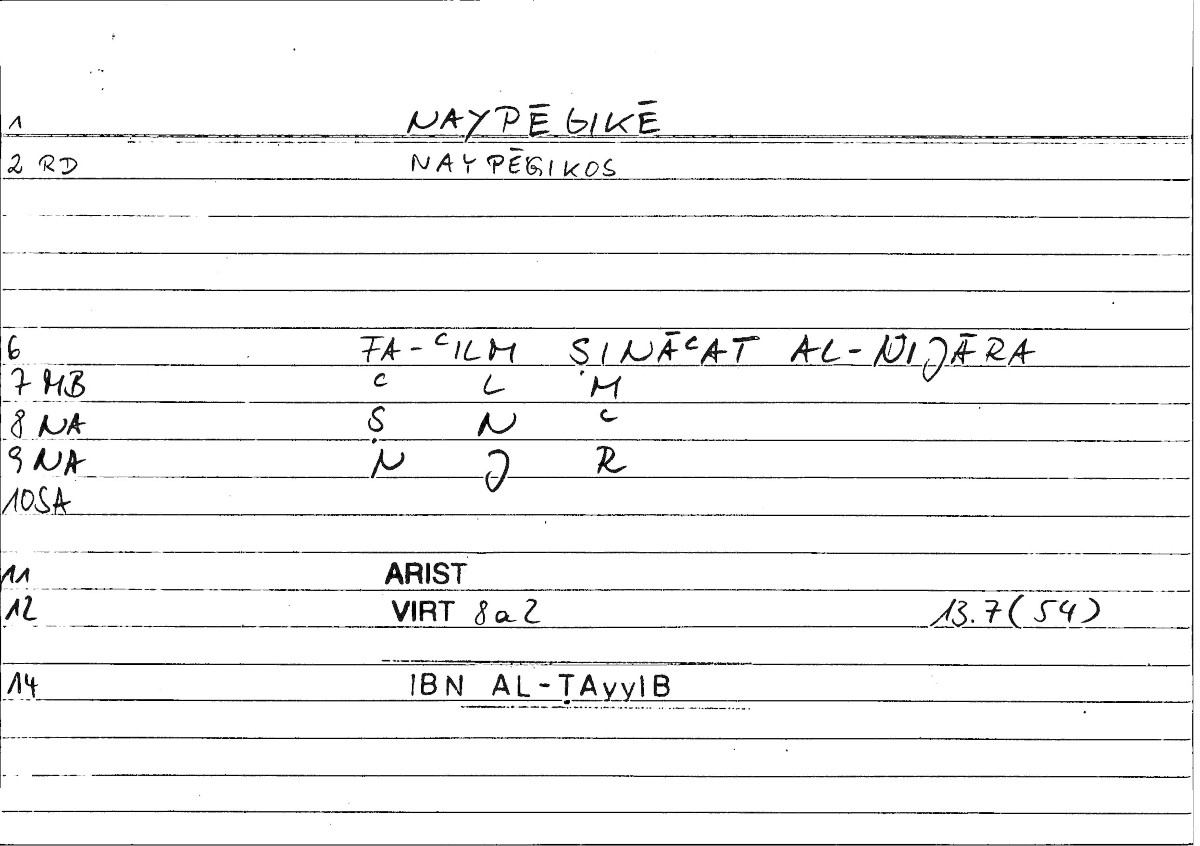 1 NAYPĒGIKĒ
2 RD NAYPĒGIKOS
6 FA-CILM ṢINĀCAT AL-NIJĀRA
7 MB C L M
8 NA Ṣ N C
9 NA N J R
10SA
11 ARIST
12 VIRT 8a2 13.7(54)
14 IBN AL-ṬAyyIB